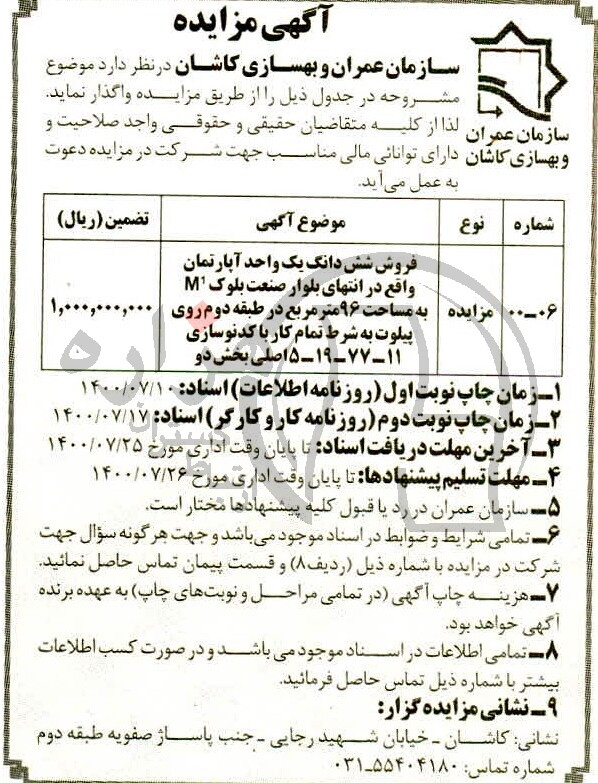 آگهی مزایده
سازمان عمران و بهسازی کاشان در نظر دارد موضوع
مشروحه در جدول ذیل را از طریق مزایده واگذار نماید.
لذا از کلیه متقاضیان حقیقی و حقوقی واجد صلاحیت و
دارای توانائی مالی مناسب جهت شرکت در مزایده دعوت
به عمل می‌آید.
سازمان عمران
و بهسازی کاشان
شماره	نوع	موضوع آگهی	تضمین (ریال)
۰۶-۰۰	مزایده	فروش شش دانگ یک واحد آپارتمان
واقع در انتهای بلوار صنعت بلوک M۱
به مساحت ۹۶ متر مربع در طبقه دوم روی
پیلوت به شرط تمام کار با کد نوسازی
۱۱-۷۷-۱۹-۵ اصلی بخش دو	۱,۰۰۰,۰۰۰,۰۰۰
۱- زمان چاپ نوبت اول (روزنامه اطلاعات) اسناد: ۱۴۰۰/۰۷/۱۰
۲- زمان چاپ نوبت دوم (روزنامه کار و کارگر) اسناد: ۱۴۰۰/۰۷/۱۷
۳- آخرین مهلت دریافت اسناد: تا پایان وقت اداری مورخ ۱۴۰۰/۰۷/۲۵
۴- مهلت تسلیم پیشنهادها: تا پایان وقت اداری مورخ ۱۴۰۰/۰۷/۲۶
۵- سازمان عمران در رد یا قبول کلیه پیشنهادها مختار است.
۶- تمامی شرایط و ضوابط در اسناد موجود می‌باشد و جهت هر گونه سؤال جهت
شرکت در مزایده با شماره ذیل (ردیف۸) و قسمت پیمان تماس حاصل نمائید.
۷- هزینه چاپ آگهی (در تمامی مراحل و نوبت‌های چاپ) به عهده برنده
آگهی خواهد بود.
۸- تمامی اطلاعات در اسناد موجود می باشد و در صورت کسب اطلاعات
بیشتر با شماره ذیل تماس حاصل فرمائید.
۹- نشانی مزایده گزار:
نشانی: کاشان - خیابان شهید رجایی - جنب پاساژ صفویه طبقه دوم
شماره تماس: ۵۵۴۰۴۱۸۰-۰۳۱